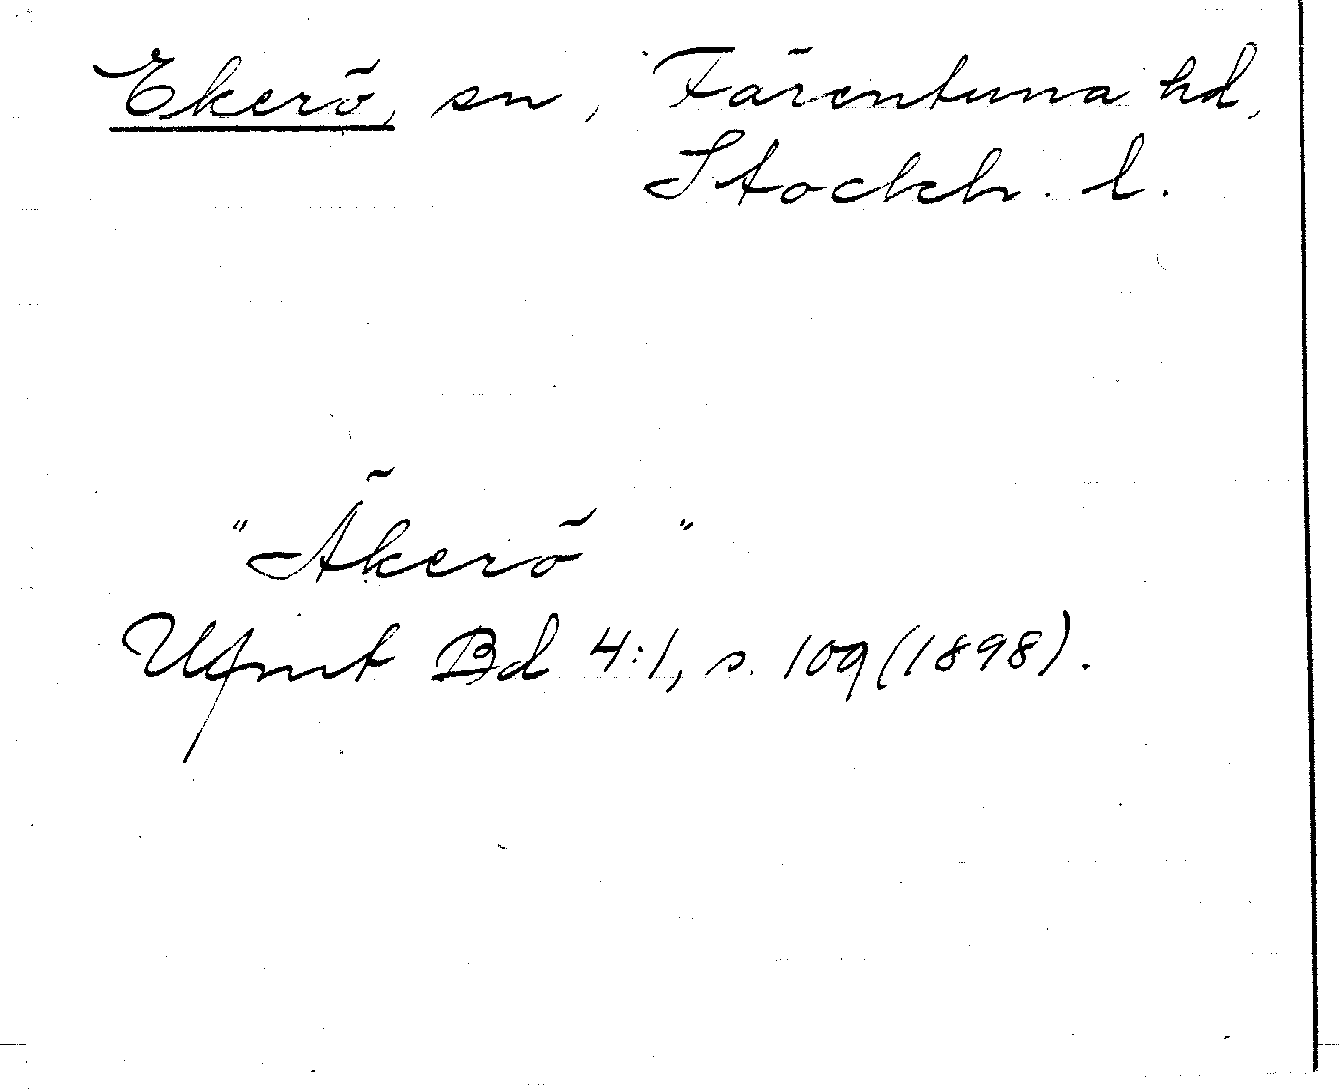 Ekerö, sn, Färentuna hd,
Stockh. l.
"Äkerö"
Ufmt Bd 4:1, s. 109 (1898).